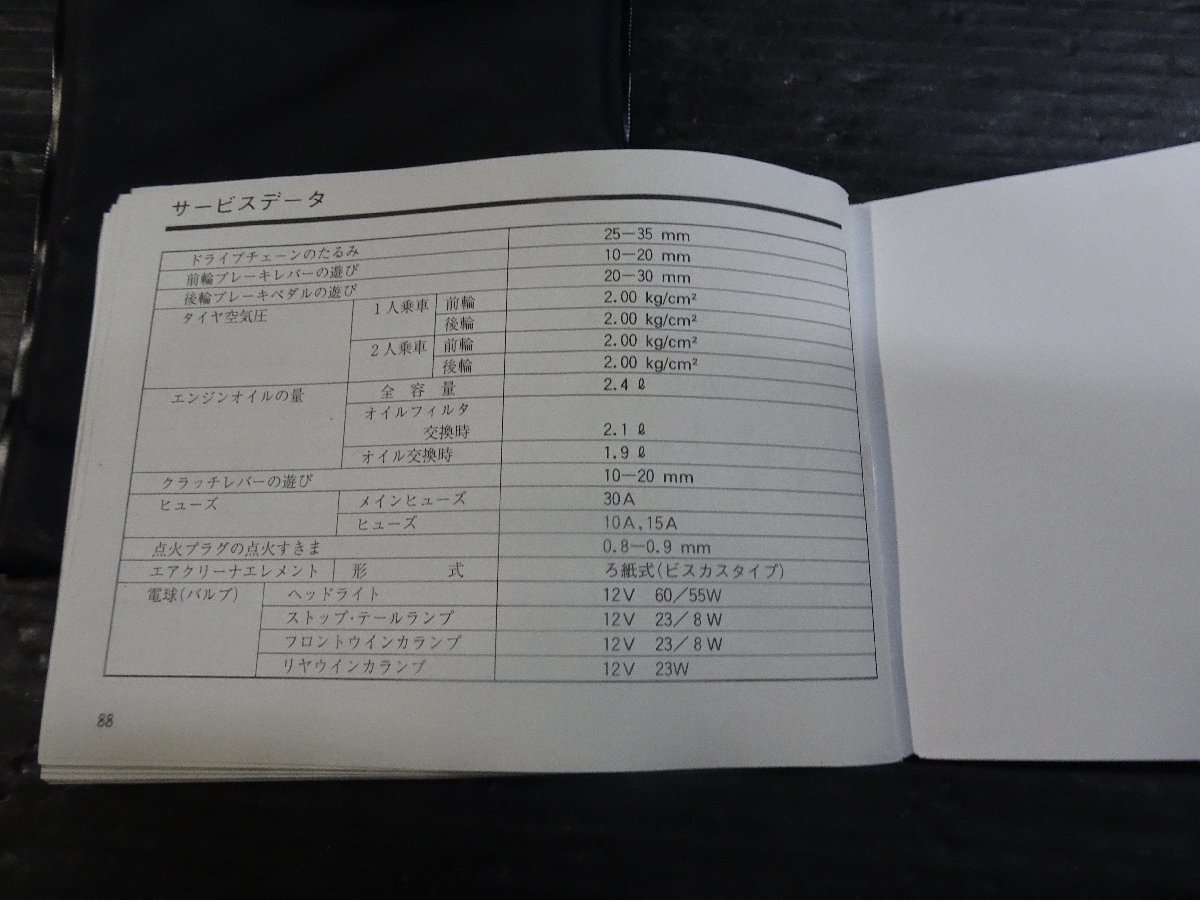 サービスデータ
ドライブチェーンのたるみ 25－35 mm
前輪ブレーキレバーの遊び 10－20 mm
後輪ブレーキペダルの遊び 20－30 mm
タイヤ空気圧 1人乗車 前輪 2.00 kg/cm²
後輪 2.00 kg/cm²
2人乗車 前輪 2.00 kg/cm²
後輪 2.00 kg/cm²
エンジンオイルの量 全容量 2.4 ℓ
オイルフィルタ
交換時 2.1 ℓ
オイル交換時 1.9 ℓ
クラッチレバーの遊び 10－20 mm
ヒューズ メインヒューズ 30A
ヒューズ 10A,15A
点火プラグの点火すきま 0.8－0.9 mm
エアクリーナエレメント 形式 ろ紙式(ビスカスタイプ)
電球(バルブ) ヘッドライト 12V 60/55W
ストップ・テールランプ 12V 23/8W
フロントウインカランプ 12V 23/8W
リヤウインカランプ 12V 23W
88